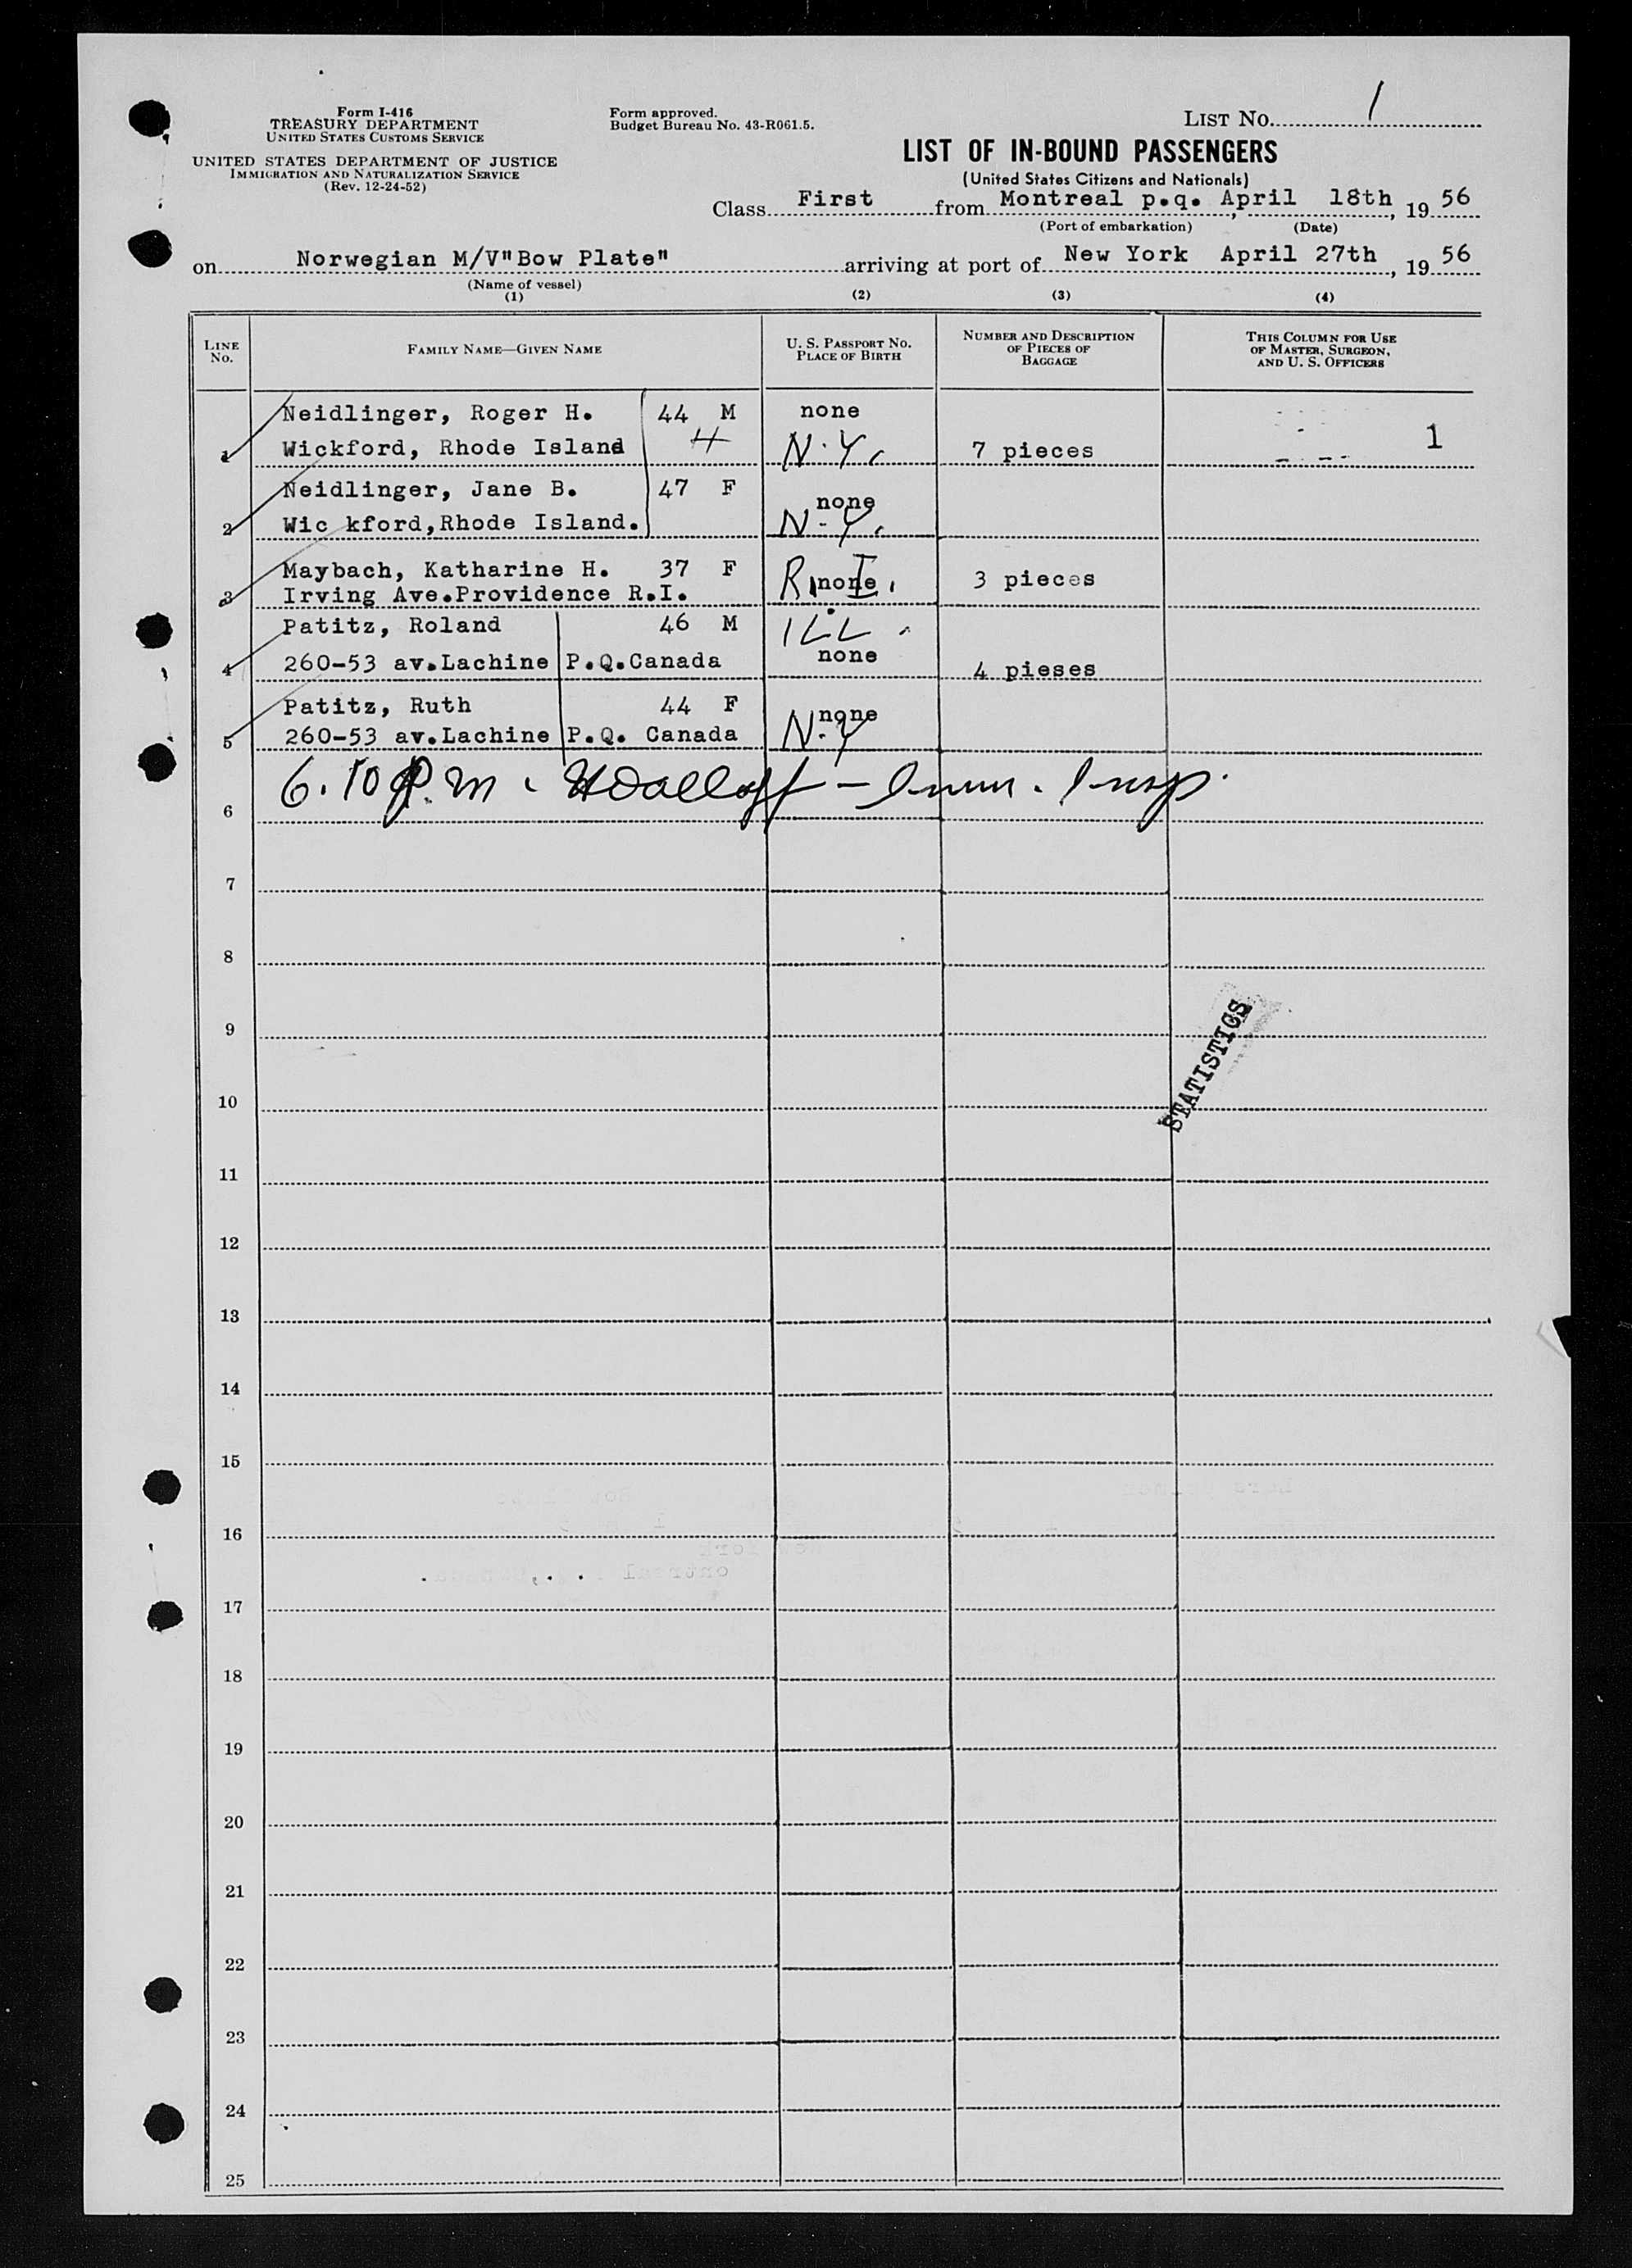 Form I-416
TREASURY DEPARTMENT
UNITED STATES CUSTOMS SERVICE
UNITED STATES DEPARTMENT OF JUSTICE
IMMIGRATION AND NATURALIZATION SERVICE
(Rev. 12-24-52)
Form approved.
Budget Bureau No. 43-R061.5.
LIST NO. 1
LIST OF IN-BOUND PASSENGERS
(United States Citizens and Nationals)
Class First from Montreal p.q. April 18th, 19 56
(Port of embarkation) (Date)
on Norwegian M/V"Bow Plate" arriving at port of New York April 27th, 19 56
(Name of vessel)
(1) (2) (3) (4)
LINE NO. FAMILY NAME—GIVEN NAME U. S. PASSPORT NO. PLACE OF BIRTH NUMBER AND DESCRIPTION OF PIECES OF BAGGAGE THIS COLUMN FOR USE OF MASTER, SURGEON, AND U. S. OFFICERS
Neidlinger, Roger H. 44 M none
1 Wickford, Rhode Island H N.Y. 7 pieces 1
Neidlinger, Jane B. 47 F none
2 Wic kford,Rhode Island. N.Y.
Maybach, Katharine H. 37 F R.I. none 3 pieces
3 Irving Ave.Providence R.I.
Patitz, Roland 46 M ILL.
4 260-53 av.Lachine P.Q.Canada none 4 pieses
Patitz, Ruth 44 F none
5 260-53 av.Lachine P.Q. Canada N.Y
6.10 P.m. Imm. Insp.
6
7
8
9
STATISTICS
10
11
12
13
14
15
16
17
18
19
20
21
22
23
24
25